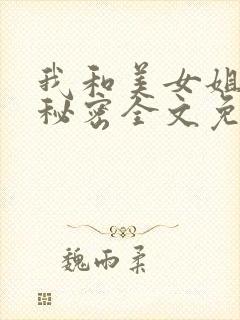 我和美女姐
秘密全文免
魏雨柔